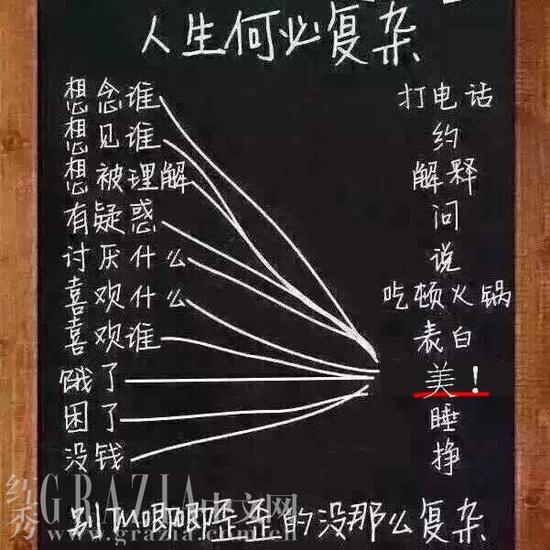 人生何必复杂
想念谁 打电话
想见谁 约
想被理解 解释
有疑惑 问
讨厌什么 说
喜欢什么 吃顿火锅
喜欢谁 表白
饿了 美！
困了 睡
没钱 挣
别TM唧唧歪歪的没那么复杂
红秀GRAZIA中文网
www.grazia.com.cn